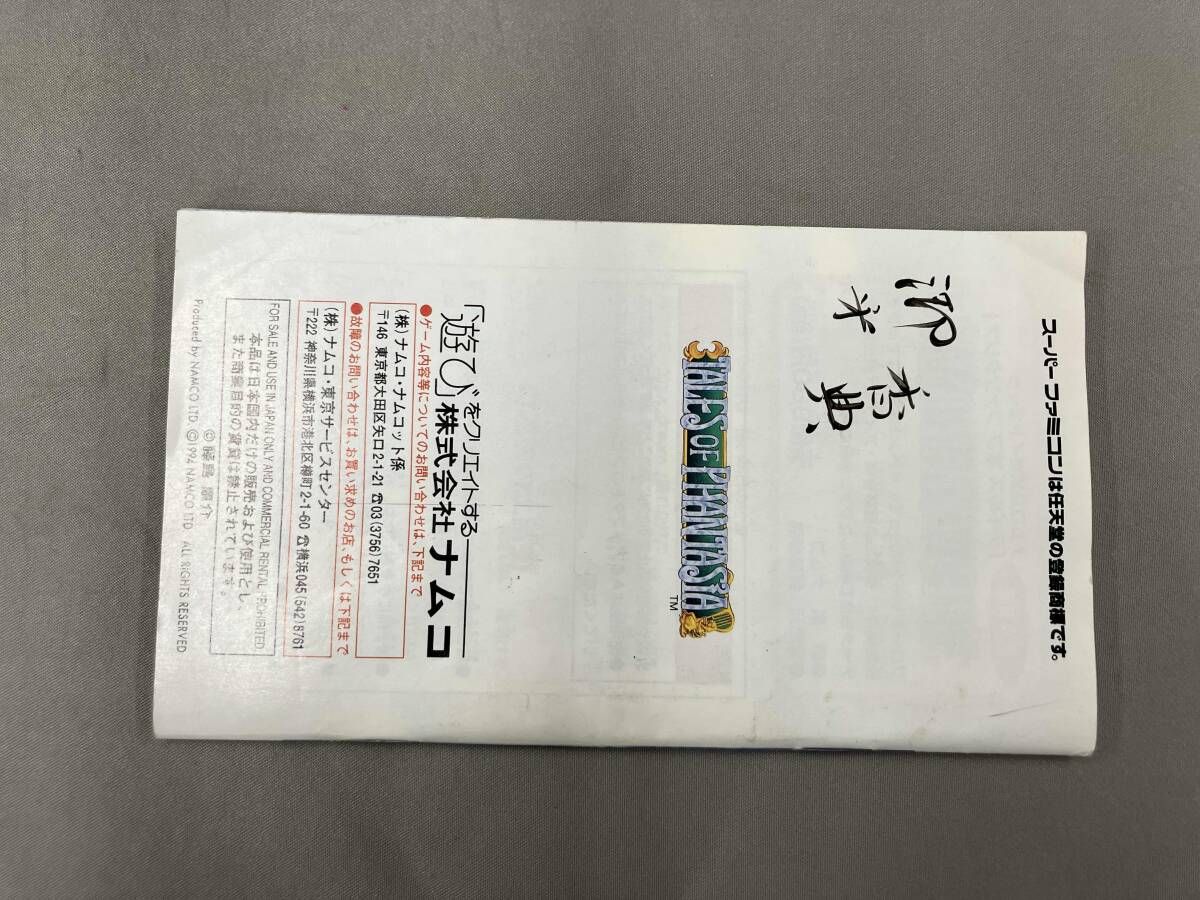 スーパーファミコンは任天堂の登録商標です。
TALES OF PHANTASIA
TM
「遊び」をクリエイトする
株式会社ナムコ
●ゲーム内容等についてのお問い合わせは、下記まで
(株)ナムコ・ナムコット係
〒146 東京都大田区矢口2-1-21 ☎03(3756)7651
●故障のお問い合わせは、お買い求めのお店、もしくは下記まで
(株)ナムコ・東京サービスセンター
〒222 神奈川県横浜市港北区樽町2-1-60 ☎横浜045(542)8761
FOR SALE AND USE IN JAPAN ONLY AND COMMERCIAL RENTAL PROHIBITED.
本品は日本国内だけの販売および使用とし、
また商業目的の賃貸は禁止されています。
©藤島 康介
Produced by NAMCO LTD. ©1994 NAMCO LTD. ALL RIGHTS RESERVED